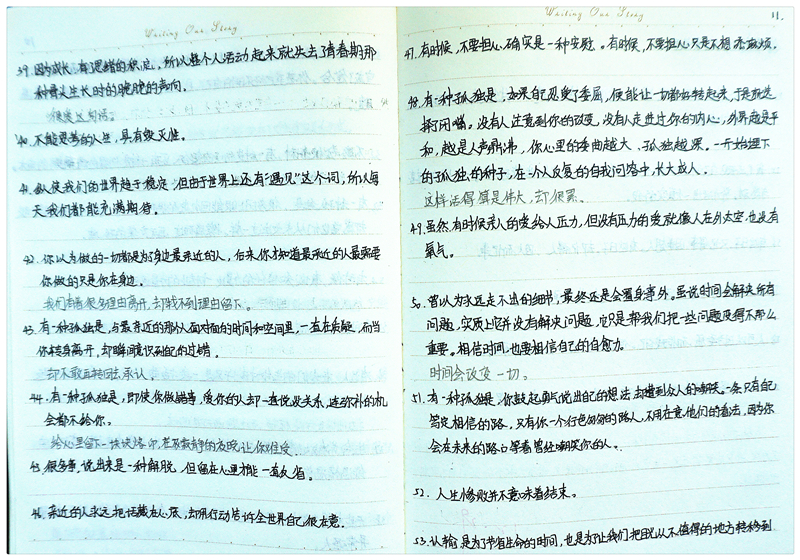 Writing Our Story
39. 因为成长,有思绪的积息,所以整个人活动起来就失去了青春期那
种骨头生长时的脆脆的声响。
很喜欢这句话。
40. 不能思考的人生,具有毁灭性。
41. 纵使我们的世界趋于稳定,但由于世界上还有“遇见”这个词,所以每
天我们都能充满期待。
42. 你以为做的一切都是为了身边最亲近的人,后来你才知道最亲近的人最需要
你做的只是你在身边。
我们有着很多理由离开,却找不到理由留下。
43. 有一种孤独是,与最亲近的那个人面对面的时间和空间里,一直在质疑,而当
你转身离开,却瞬间意识到自己的过错。
却不敢再转回去承认。
44. 有一种孤独是,即使你做错事,爱你的人却一直说没关系,连弥补的机
会都不给你。
给心里留下一块块烙印,若干寂静的夜晚,让你难受。
45. 很多事,说出来是一种解脱,但留在心里才能一直反省。
46. 亲近的人永远把话藏在心底,却用行动告诉全世界自己很在意。
Writing Our Story
11.
47. 有时候,不要担心,确实是一种安慰。有时候,不要担心只是不想添麻烦。
48. 有一种孤独是,如果自己忍受了委屈,便能让一切都好转起来,于是就选
择了闭嘴。没有人注意到你的改变,没有人走进过你的内心,外界越是平
和,越是人声鼎沸,你心里的委曲越大、孤独越深。一开始埋下
的孤独的种子,在一个人反复的自我问答中,长大成人。
这样活得算是伟大,却很累。
49. 虽然,有时候亲人的爱给人压力,但没有压力的爱就像人在外太空,也没有
氧气。
50. 曾以为永远走不出的细节,最终还是会置身事外。虽说时间会解决所有
问题,实质上它并没有解决问题,它只是帮我们把一些问题变得不那么
重要。相信时间,也要相信自己的自愈力。
时间会改变一切。
51. 有一种孤独是,你鼓起勇气说出自己的想法,却遭到众人的嘲笑。一条只有自己
笃定相信的路,只有你一个行色匆匆的路人,不用在意他们的看法,因为你
会在未来的路口等着曾经嘲笑你的人。
52. 人生惨败并不意味着结束。
53. 认输是为了节省生命的时间,也是为了让我们把目光从不值得的地方转移到